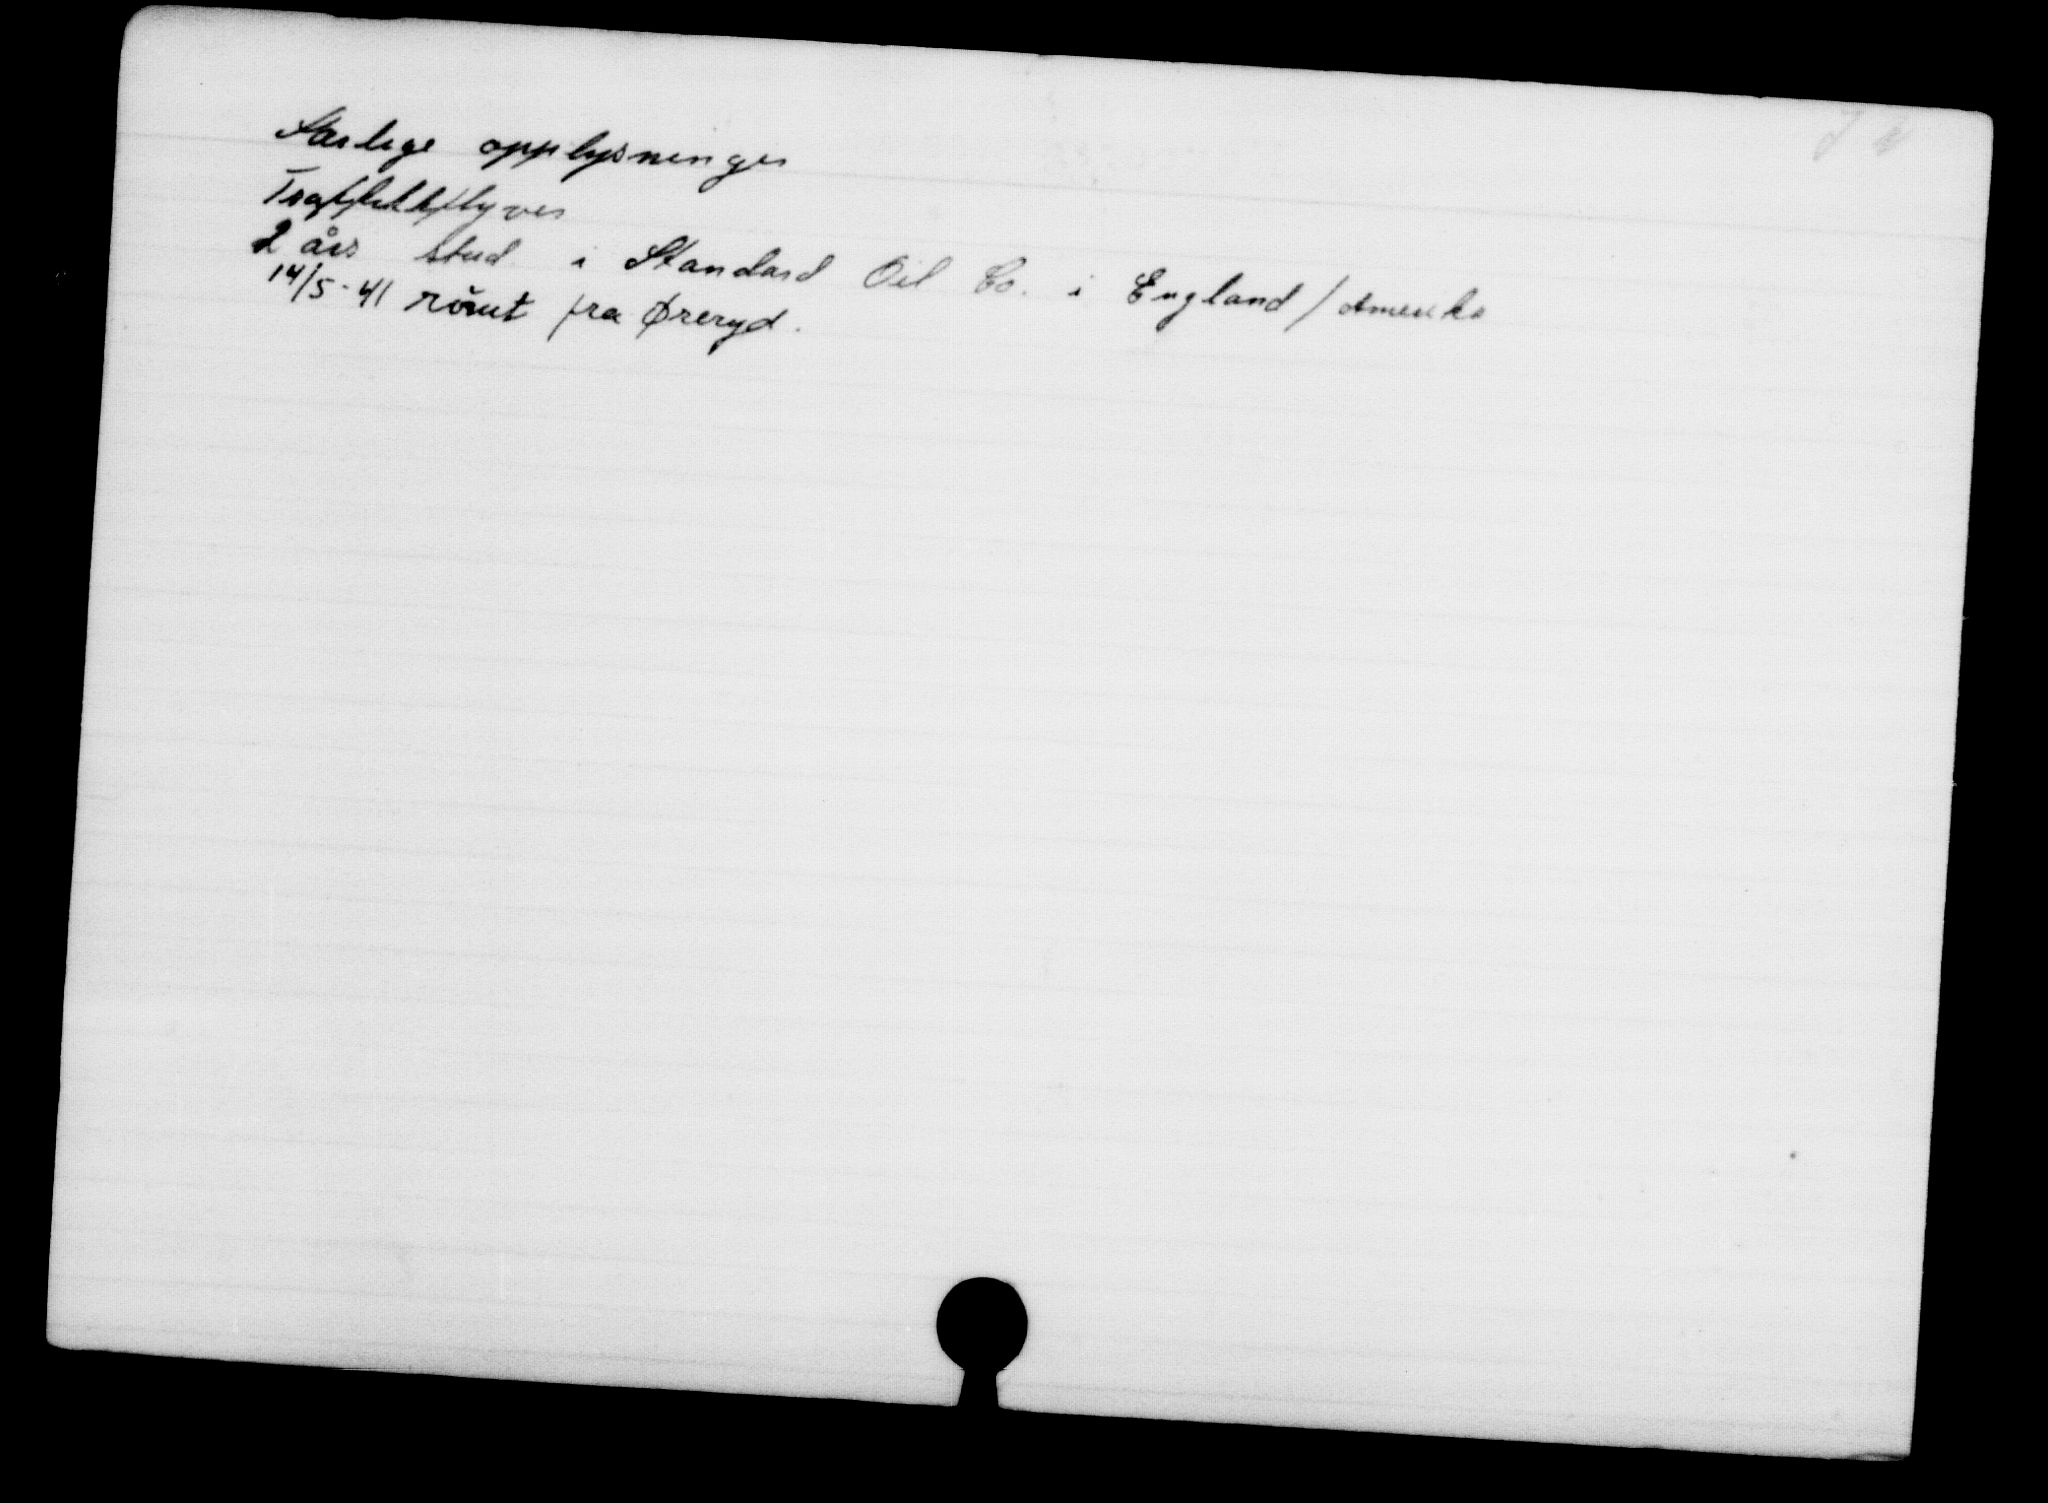 Særlige opplysninger
Traffikkflyver
2 års stud. i Standard Oil Co. i England / Amerika
14/5-41 römt fra Øreryd.